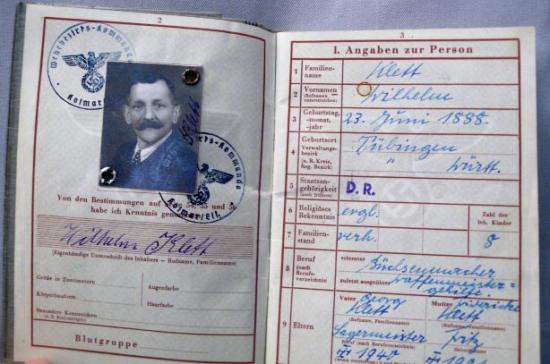 2
Wehrbezirks-Kommando
Kolmar/Els.
Klett
Wehrbezirks-Kommando
Kolmar/Els.
Von den Bestimmungen auf
habe ich Kenntnis
Wilhelm Klett
(Eigenhändige Unterschrift des Inhabers – Rufname, Familienname)
Größe in Zentimetern
Augenfarbe
Körperform
Haarfarbe
Besondere Kennzeichen
Blutgruppe
3
I. Angaben zur Person
1 Familien-
name
Klett
2 Vornamen
(Rufnamen
unterstreichen)
Wilhelm
3 Geburtstag,
-monat,
-jahr
23. Juni 1888.
4 Geburtsort
Verwaltungs-
bezirk
(z. B. Kreis,
Reg. Bezirk)
Tübingen
" Württ.
5 Staatsan-
gehörigkeit
D. R.
6 Religiöses
Bekenntnis
evgl.
Zahl der
Kinder
7 Familien-
stand
verh.
8
8 Beruf
(nach
Berufs-
verzeichnis)
erlernter
Büchsenmacher
zuletzt ausgeübter
9 Eltern
Vater
Georg
Klett
Mutter
Klett
(Rufname, Familienname)